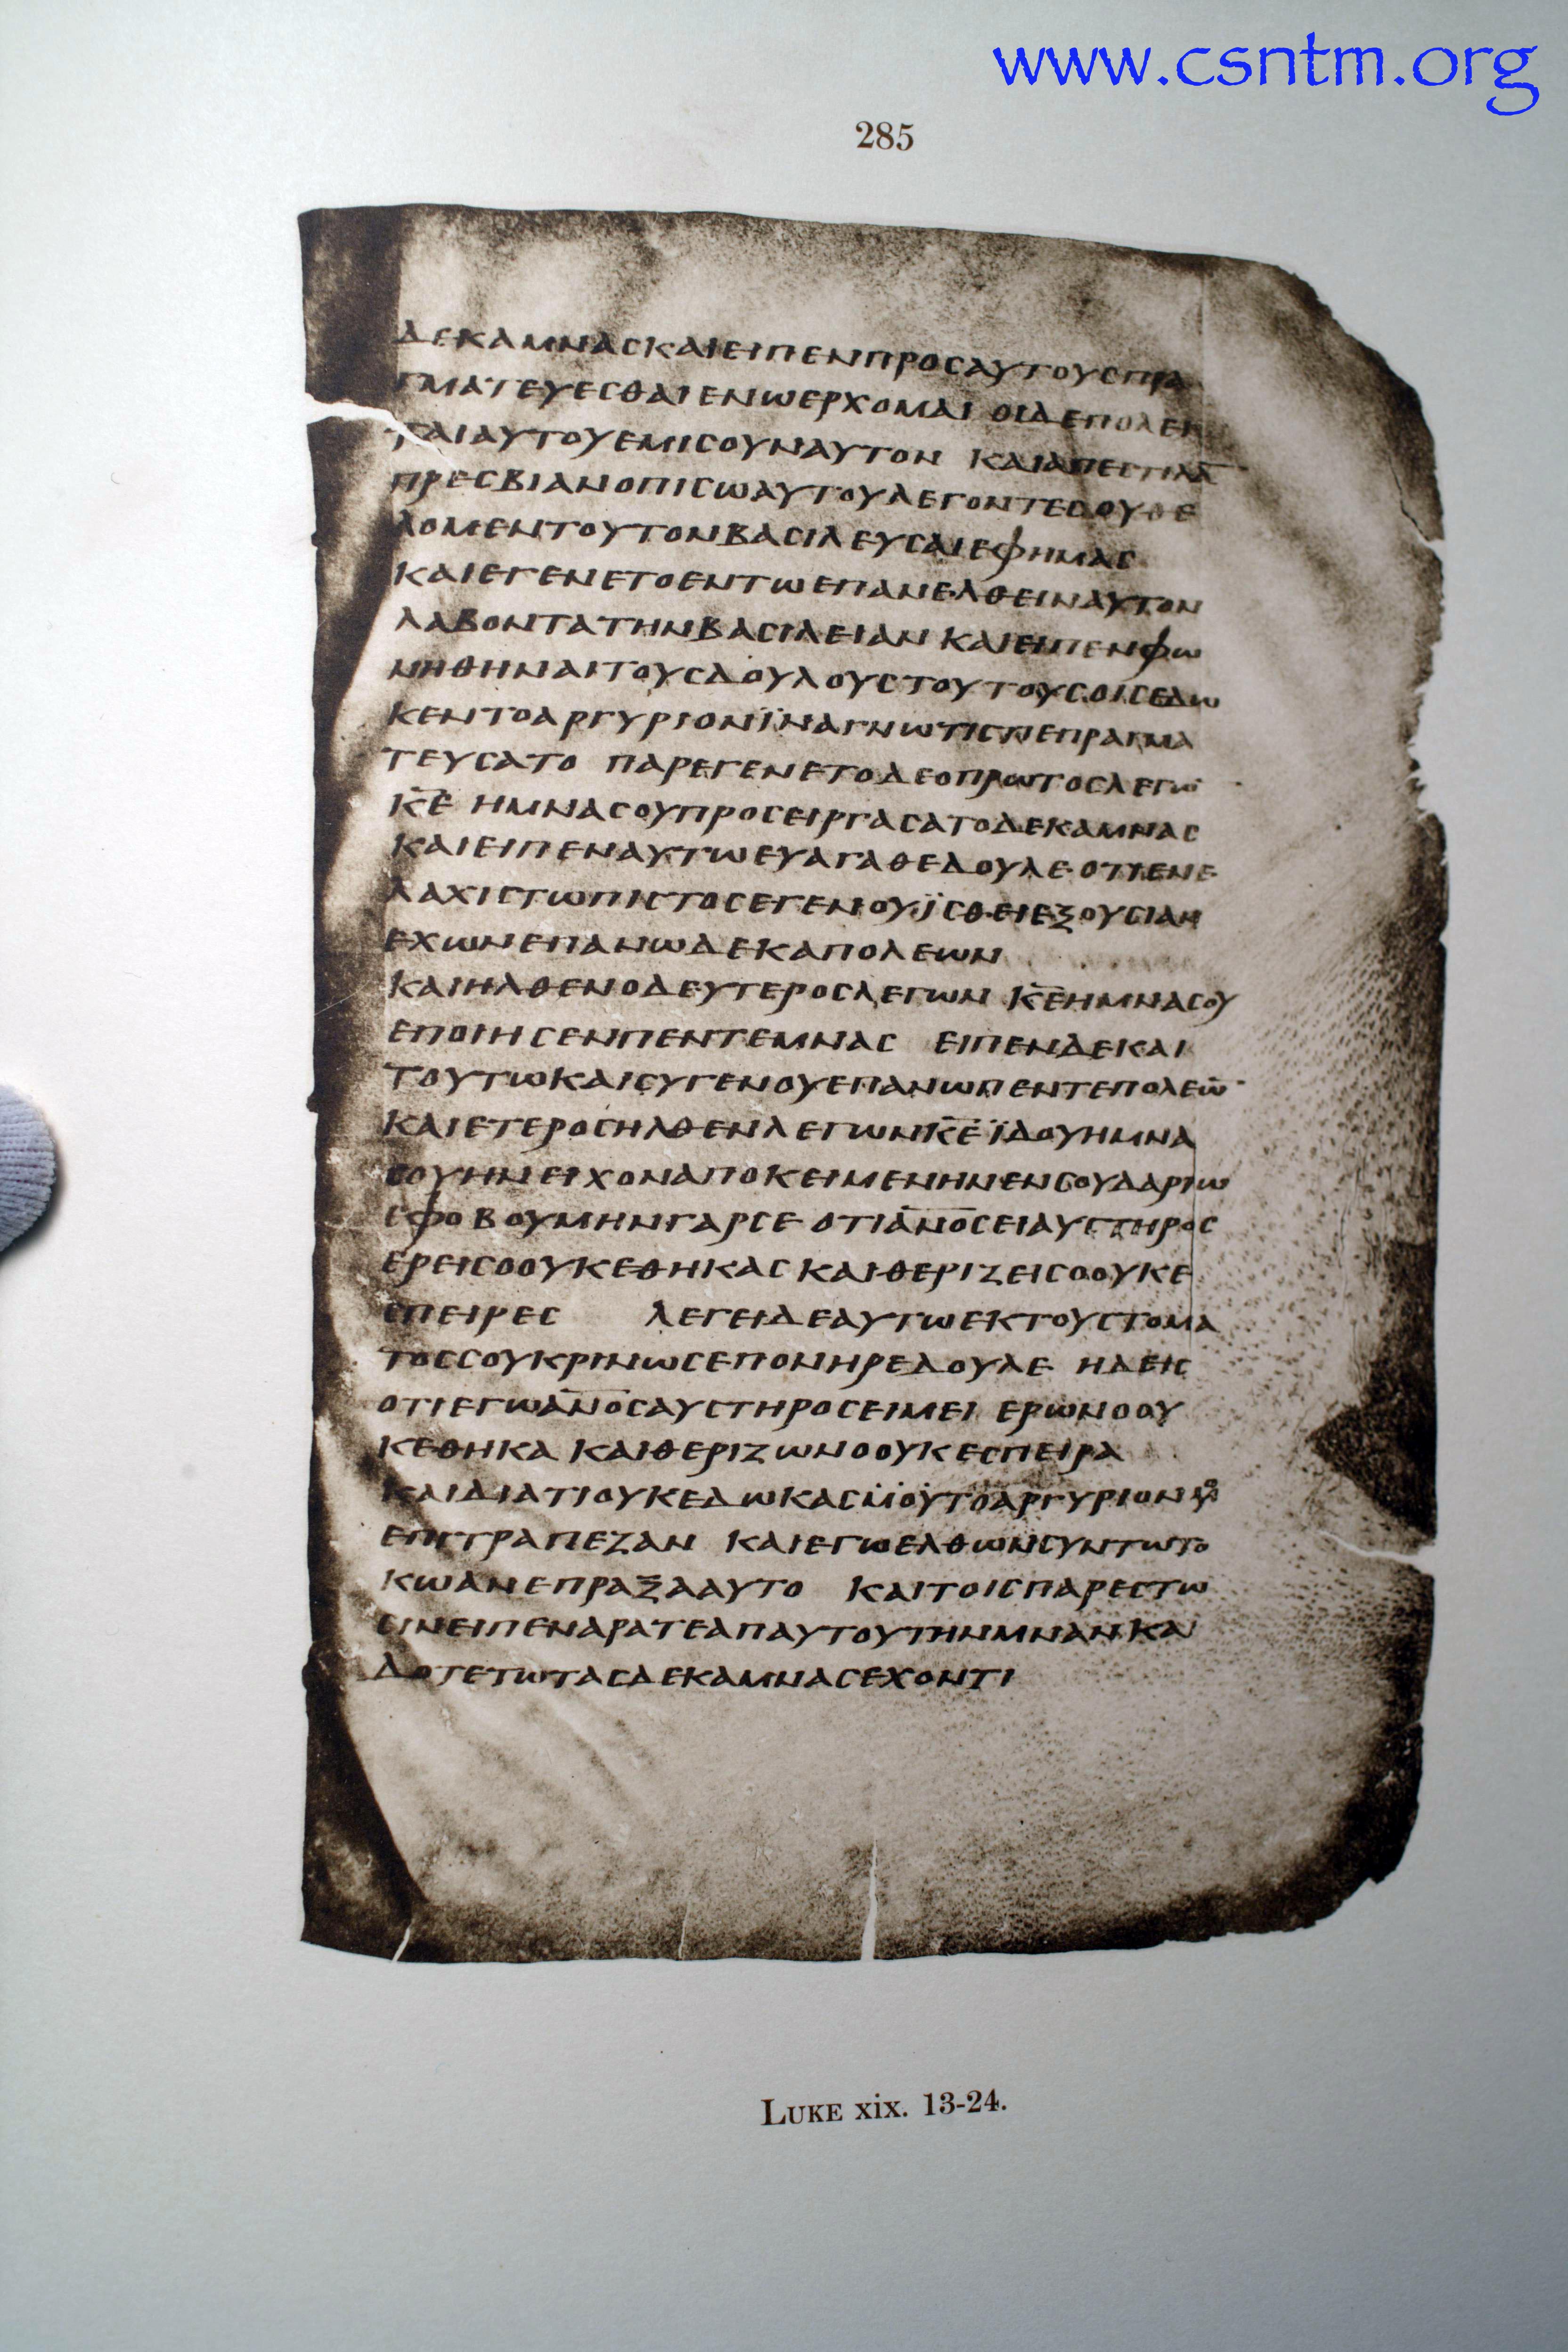 www.csntm.org
285
ΔΕΚΑΜΝΑΣΚΑΙΕΙΠΕΝΠΡΟΣΑΥΤΟΥΣΠΡΑ
ΓΜΑΤΕΥΕΣΘΑΙΕΝΩΕΡΧΟΜΑΙ ΟΙΔΕΠΟΛΕΙ
ΤΑΙΑΥΤΟΥΕΜΙΣΟΥΝΑΥΤΟΝ ΚΑΙΑΠΕΣΤΙΛΑ̅
ΠΡΕΣΒΙΑΝΟΠΙΣΩΑΥΤΟΥΛΕΓΟΝΤΕΣΟΥΘΕ
ΛΟΜΕΝΤΟΥΤΟΝΒΑΣΙΛΕΥΣΑΙΕΦΗΜΑΣ
ΚΑΙΕΓΕΝΕΤΟΕΝΤΩΕΠΑΝΕΛΘΕΙΝΑΥΤΟΝ
ΛΑΒΟΝΤΑΤΗΝΒΑΣΙΛΕΙΑΝ ΚΑΙΕΙΠΕΝΦΩ
ΝΗΘΗΝΑΙΤΟΥΣΔΟΥΛΟΥΣΤΟΥΤΟΥΣΟΙΣΕΔΩ
ΚΕΝΤΟΑΡΓΥΡΙΟΝΪΝΑΓΝΩΤΙΣΤΙΕΠΡΑΓΜΑ
ΤΕΥΣΑΤΟ ΠΑΡΕΓΕΝΕΤΟΔΕΟΠΡΩΤΟΣΛΕΓΩ̅
Κ̅Ε̅ ΗΜΝΑΣΟΥΠΡΟΣΕΙΡΓΑΣΑΤΟΔΕΚΑΜΝΑΣ
ΚΑΙΕΙΠΕΝΑΥΤΩΕΥΑΓΑΘΕΔΟΥΛΕ ΟΤΙΕΝΕ
ΛΑΧΙΣΤΩΠΙΣΤΟΣΕΓΕΝΟΥΪΣΘΕΙΕΞΟΥΣΙΑΝ
ΕΧΩΝΕΠΑΝΩΔΕΚΑΠΟΛΕΩΝ
ΚΑΙΗΛΘΕΝΟΔΕΥΤΕΡΟΣΛΕΓΩΝ Κ̅Ε̅ΗΜΝΑΣΟΥ
ΕΠΟΙΗΣΕΝΠΕΝΤΕΜΝΑΣ ΕΙΠΕΝΔΕΚΑΙ
ΤΟΥΤΩΚΑΙΣΥΓΕΝΟΥΕΠΑΝΩΠΕΝΤΕΠΟΛΕΩ̅
ΚΑΙΕΤΕΡΟΣΗΛΘΕΝΛΕΓΩΝΚ̅Ε̅ ΪΔΟΥΗΜΝΑ
ΣΟΥΗΝΕΙΧΟΝΑΠΟΚΕΙΜΕΝΗΝΕΝΣΟΥΔΑΡΙΩ
ΕΦΟΒΟΥΜΗΝΓΑΡΣΕ ΟΤΙΑ̅Ν̅Ο̅ΣΕΙΑΥΣΤΗΡΟΣ
ΕΡΕΙΣΟΟΥΚΕΘΗΚΑΣ ΚΑΙΘΕΡΙΖΕΙΣΟΟΥΚΕ
ΣΠΕΙΡΕΣ ΛΕΓΕΙΔΕΑΥΤΩΕΚΤΟΥΣΤΟΜΑ
ΤΟΣΣΟΥΚΡΙΝΩΣΕΠΟΝΗΡΕΔΟΥΛΕ ΗΔΕΙΣ
ΟΤΙΕΓΩΑ̅Ν̅Ο̅ΣΑΥΣΤΗΡΟΣΕΙΜΕΙ ΕΡΩΝΟΟΥ
ΚΕΘΗΚΑ ΚΑΙΘΕΡΙΖΩΝΟΟΥΚΕΣΠΕΙΡΑ
ΚΑΙΔΙΑΤΙΟΥΚΕΔΩΚΑΣ
ΕΠΙΤΡΑΠΕΖΑΝ ΚΑΙΕΓΩΕΛΘΩΝΣΥΝΤΩΤΟ
ΚΩΑΝΕΠΡΑΞΑΑΥΤΟ ΚΑΙΤΟΙΣΠΑΡΕΣΤΩ
ΣΙΝΕΙΠΕΝΑΡΑΤΕΑΠΑΥΤΟΥΤΗΝΜΝΑΝΚΑΙ
ΔΟΤΕΤΩΤΑΣΔΕΚΑΜΝΑΣΕΧΟΝΤΙ
LUKE xix. 13-24.